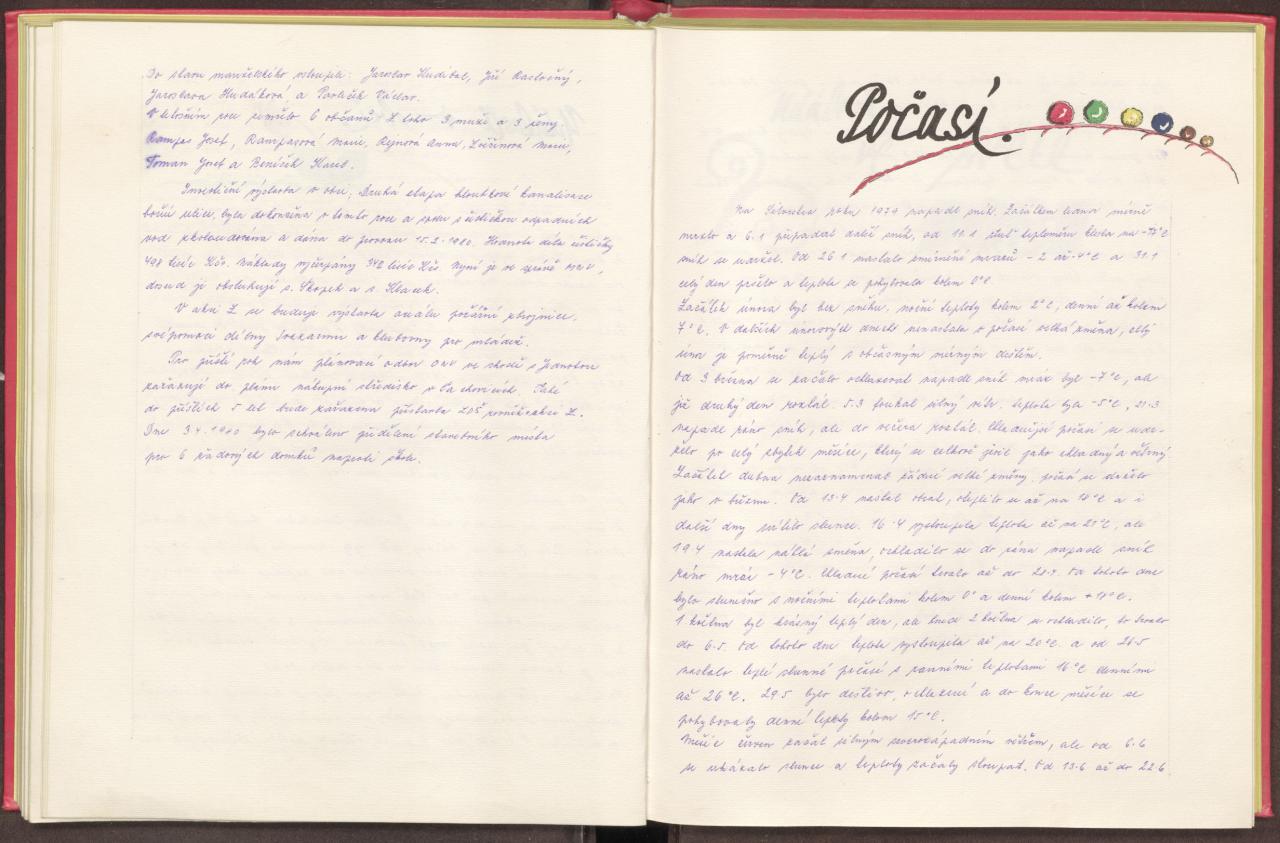 Do stavu manželského vstoupili: Jaroslav Hudibal, Jiří
Jaroslava Hudáková, a Pavlíček Václav.
V letošním roce zemřelo 6 občanů z toho 3 muži a 3 ženy
Rampas Josef, Rampasová Marie, Rejnová Anna, Marie,
Toman Josef a Beníček Karel.
Investiční výstavba v obci: Druhá etapa hloubkové kanalizace
boční ulice, byla dokončena v tomto roce a spolu s čističkou odpadních
vod zkolaudována a dána do provozu 15.2.1980. Hodnota díla čističky
498 tisíc Kčs. Náklady vyčerpány 342 tisíc Kčs. Nyní je ve správě MNV,
dosud je obsluhují s. Skopek a s. Hlasek.
V akci Z se buduje výstavba areálu požární zbrojnice,
svépomocí dílny Svazarmu a klubovny pro mládež.
Pro příští rok nám plánovací odbor ONV ve shodě s Jednotou
zařazují do plánu nákupní středisko v Také
do příštích 5 let bude zařazena přístavba ZDŠ rovněž v akci Z.
Dne 3.4.1980 bylo schváleno přidělení stavebního místa
pro 6 řadových domků naproti škole.
Počasí.
Na Silvestra roku 1979 napadl sníh. Začátkem ledna mírně
mrzlo a 6.1 připadal další sníh, od 11.1 teploměr klesl na -17°C
sníh se udržel. Od 26.1 nastalo zmírnění mrazů -2 až -4°C a 31.1
celý den pršelo a teplota se pohybovala kolem 0°C.
Začátek února byl bez sněhu, noční teploty kolem 2°C, denní až kolem
7°C. V dalších únorových dnech nenastala v počasí velká změna, celý
únor je poměrně teplý s občasným mírným deštěm.
Od 3 března se začalo ochlazovat napadl sníh mráz byl -7°C, ale
již druhý den roztál. 5.3 foukal silný vítr, teplota byla -5°C, 21.3
napadl ráno sníh, ale do večera roztál. Chladnější počasí se udr-
želo po celý zbytek měsíce, který se celkově jevil jako chladný a větrný
Začátek dubna nezaznamenal žádné velké změny, počasí se drželo
jako v březnu. Od 13.4 nastal obrat, oteplilo se až na 18°C a i
další dny svítilo slunce. 16.4 vystoupila teplota až na 21°C, ale
19.4 nastala náhlá změna, ochladilo se do rána napadl sníh
ráno mráz -4°C. Chladné počasí trvalo až do 28.4. Od tohoto dne
bylo slunečno s nočními teplotami kolem 0° a denní kolem +18°C.
1 května byl krásný teplý den, ale hned 2 května se ochladilo, to trvalo
do 6.5. Od tohoto dne teplota vystoupila až na 20°C. a od 26.5
nastalo teplé slunné počasí s ranními teplotami 16°C denními
až 26°C. 29.5 bylo deštivo, ochlazení a do konce měsíce se
pohybovaly denní teploty kolem 15°C.
Měsíc červen začal silným severozápadním větrem, ale od 6.6
se ukázalo slunce a teploty začaly stoupat. Od 13.6 až do 22.6